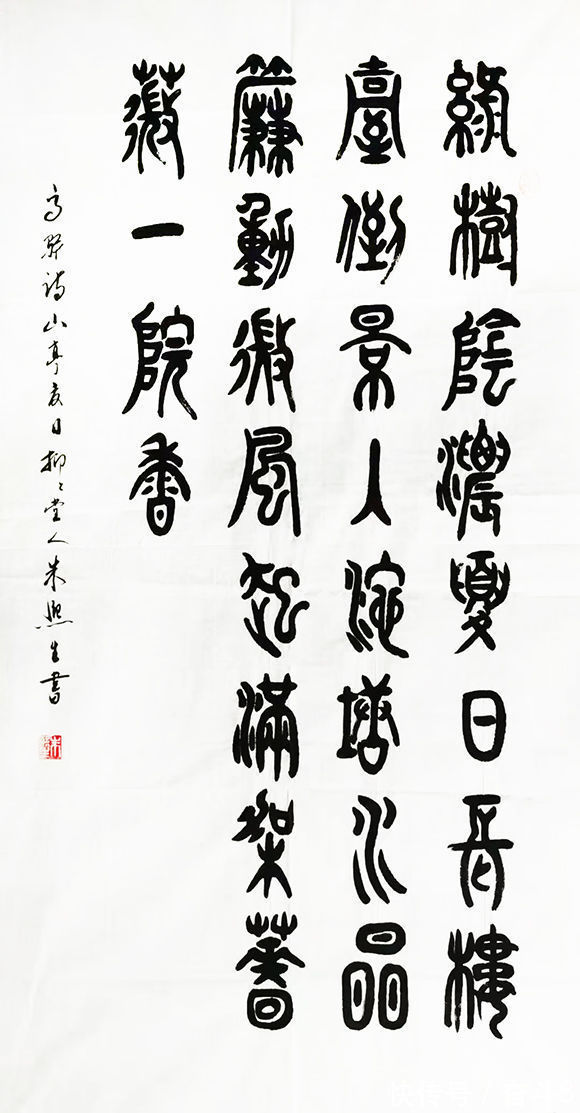 綠樹陰濃夏日長樓
臺倒景入池塘水晶
簾動微風起滿架薔
薇一院香
高駢詩山亭夏日柳〻堂人朱熙生書
快传号